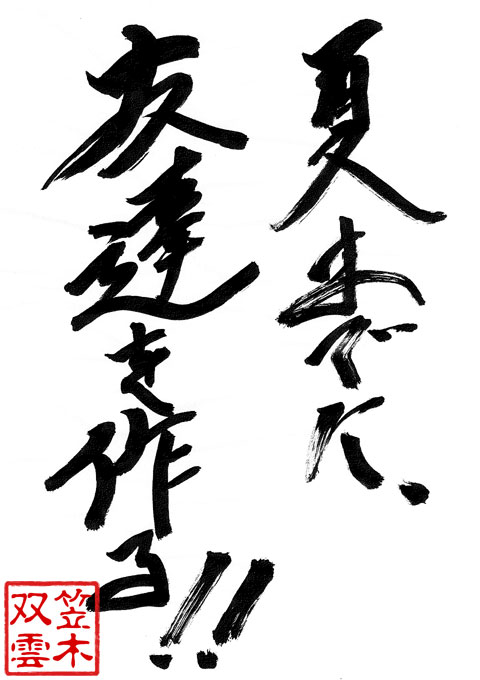 夏までに、
友達を作る!!
笠木
双雲